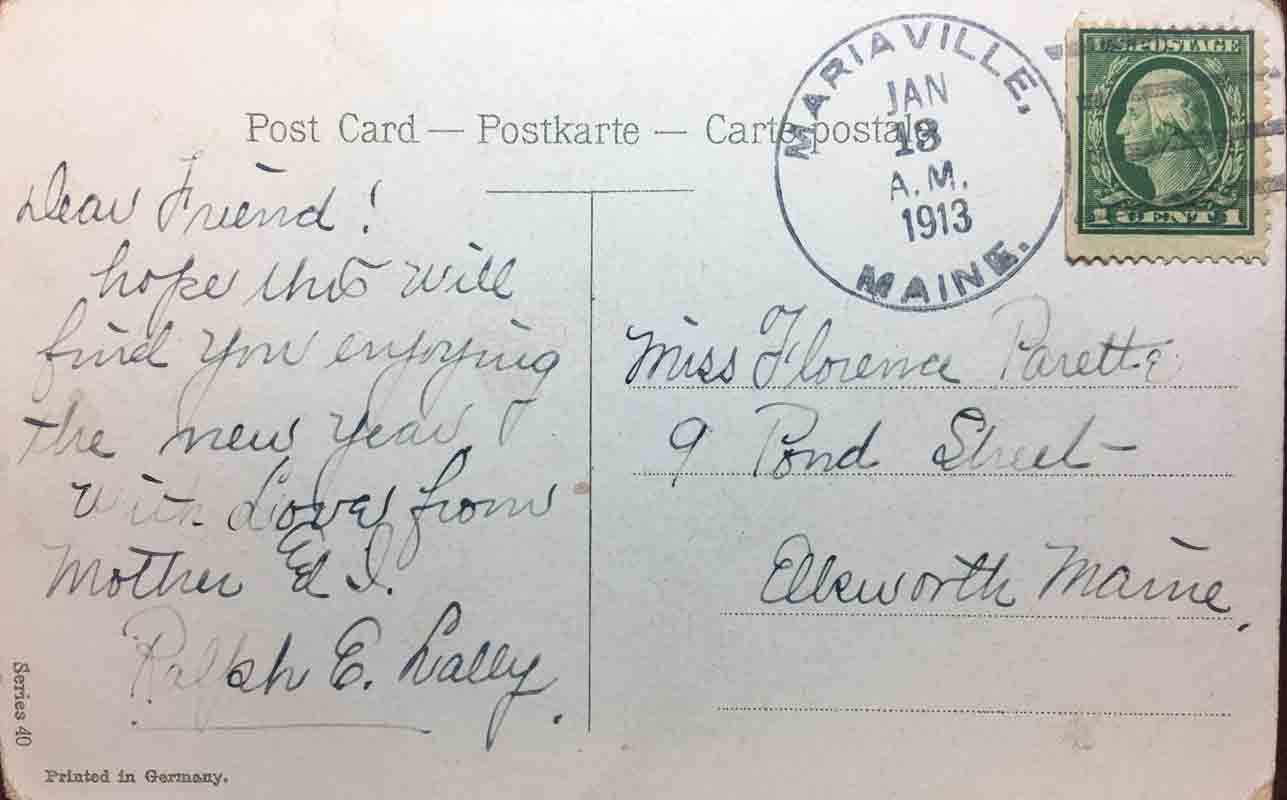 Post Card — Postkarte — Carte postale
MARIAVILLE,
JAN
13
A.M.
1913
MAINE.
U.S. POSTAGE
1 CENT 1
Dear Friend!
hope this will
find you enjoying
the new year
With Love from
Mother & I.
Ralph E. Lally.
Miss Florence Parette
9 Pond Street
Ellsworth Maine,
Series 40
Printed in Germany.